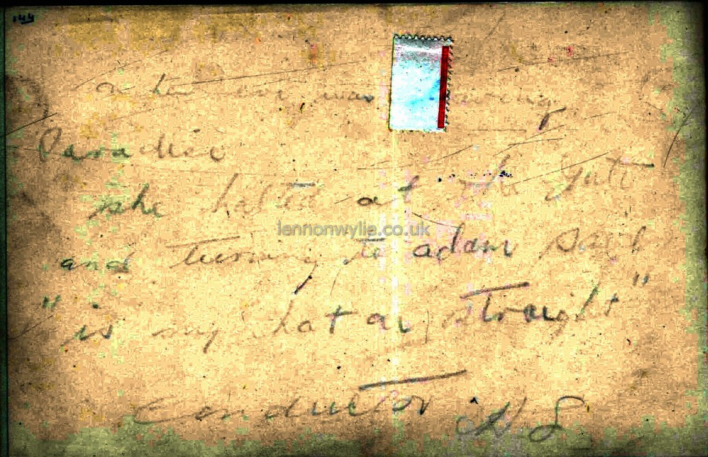 144
when Eve was leaving
Paradise
she halted at the gate
lennonwylie.co.uk
and turning to adam said
"is my hat on straight"
Conductor N S